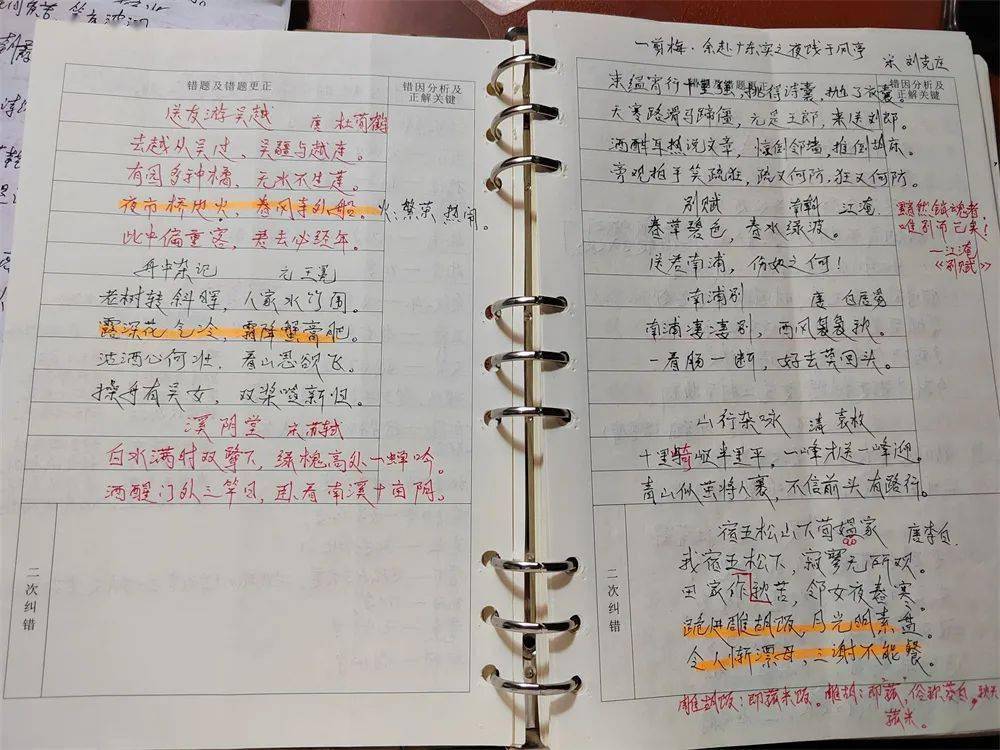 错题及错题更正
错因分析及
正解关键
送友游吴越 唐 杜荀鹤
去越从吴过，吴疆与越连。
有园多种橘，无水不生莲。
夜市桥边火，春风寺外船。火：繁荣、热闹。
此中偏重客，君去必经年。
舟中杂记 元 王冕
老树转斜晖，人家水竹围。
露深花气冷，霜降蟹膏肥。
沽酒心何壮，看山思欲飞。
操舟有吴女，双桨唱新归。
溪阴堂 宋 苏轼
白水满时双鹭下，绿槐高处一蝉吟。
酒醒门外三竿日，卧看南溪十亩阴。
二次纠错
一剪梅·余赴广东实之夜饯于风亭
宋 刘克庄
错题及错题更正
错因分析及
正解关键
束缊宵行十里强，挑得诗囊，抛了衣囊。
天寒路滑马蹄僵，元是王郎，来送刘郎。
酒酣耳热说文章，惊倒邻墙，推倒胡床。
旁观拍手笑疏狂，疏又何防，狂又何防。
别赋 南朝 江淹
春草碧色，春水绿波。
送君南浦，伤如之何！
黯然销魂者，
唯别而已矣！
—江淹
《别赋》
南浦别 唐 白居易
南浦凄凄别，西风袅袅秋。
一看肠一断，好去莫回头。
山行杂咏 清 袁枚
十里崎岖半里平，一峰才送一峰迎。
青山似茧将人裹，不信前头有路行。
二次纠错
宿五松山下荀媪家 唐 李白
我宿五松下，寂寥无所观。
田家作秋苦，邻女夜舂寒。
跪进雕胡饭，月光明素盘。
令人惭漂母，三谢不能餐。
雕胡饭：即菰米饭。雕胡：即菰，俗称茭白，
菰米。